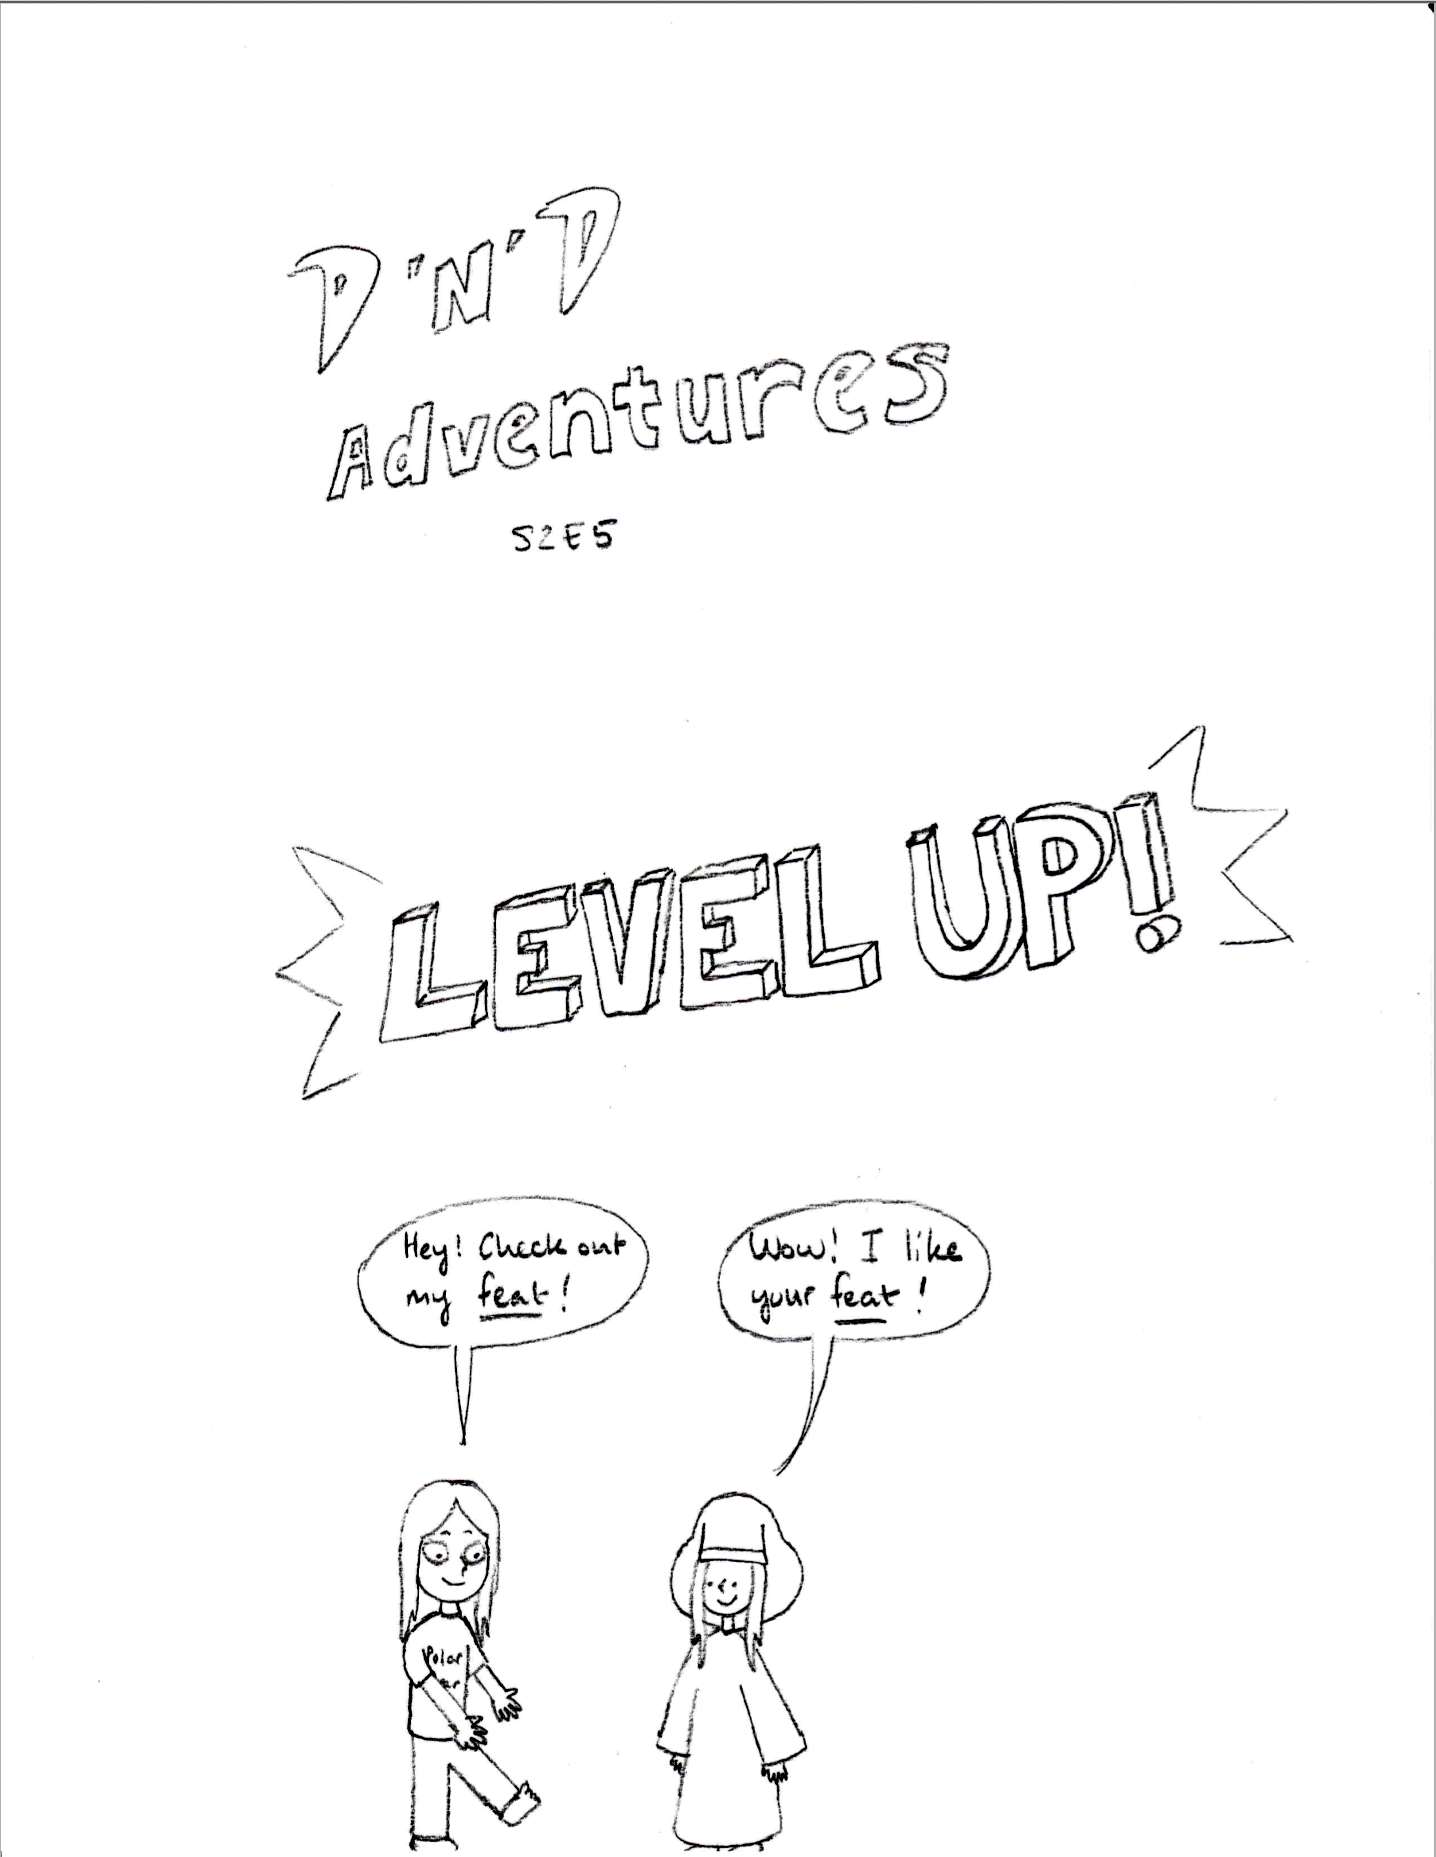 D'N'D
Adventures
S2E5
LEVEL UP!
Hey! Check out
my feat!
Wow! I like
your feat!
Polar